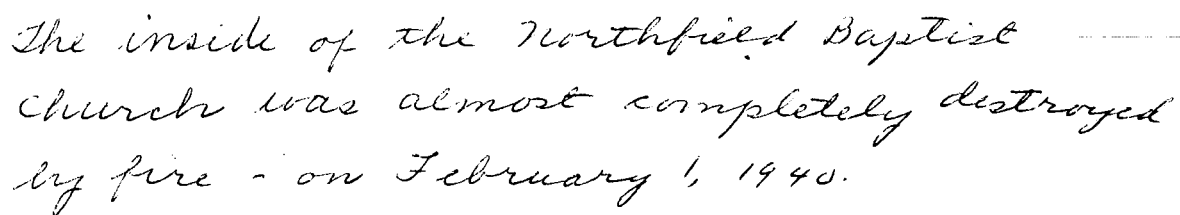 The inside of the Northfield Baptist
Church was almost completely destroyed
by fire - on February 1, 1940.